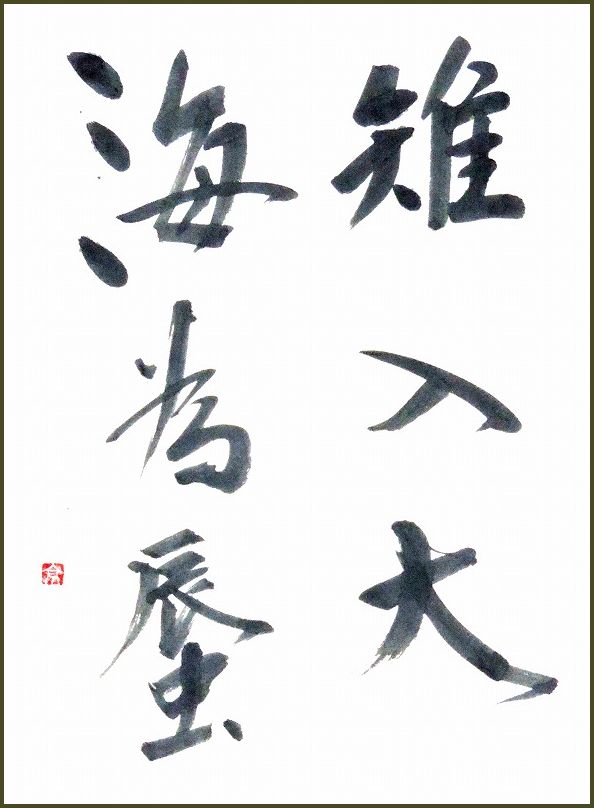 雉入大
海為蜃